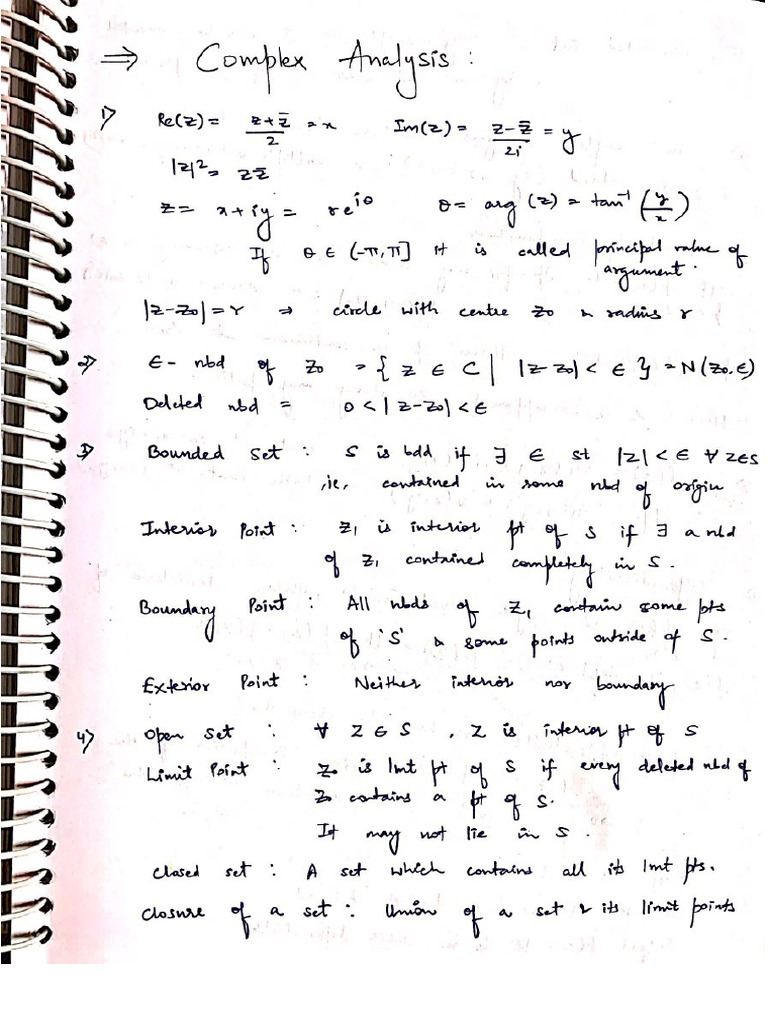 ⇒ Complex Analysis :
1) Re(z) = (z+z̄)/2 = x Im(z) = (z-z̄)/2i = y
|z|² = zz̄
z = x+iy = re^{iθ} θ = arg(z) = tan⁻¹(y/x)
If θ ∈ (-π, π] it is called principal value of
argument.
|z-z₀| = r ⇒ circle with centre z₀ & radius r
2) ε- nbd of z₀ = { z ∈ C | |z-z₀| < ε } = N(z₀,ε)
Deleted nbd = 0 < |z-z₀| < ε
3) Bounded set : S is bdd if ∃ ε st |z| < ε ∀ z∈S
,ie, contained in some nbd of origin
Interior Point : z₁ is interior pt of S if ∃ a nbd
of z₁ contained completely in S.
Boundary Point : All nbds of z₁ contain some pts
of 'S' & some points outside of S.
Exterior Point : Neither interior nor boundary
4) Open set : ∀ z ∈ S , z is interior pt of S
Limit Point : z₀ is lmt pt of S if every deleted nbd of
z₀ contains a pt of S.
It may not lie in S.
Closed set : A set which contains all its lmt pts.
Closure of a set : Union of a set & its limit points